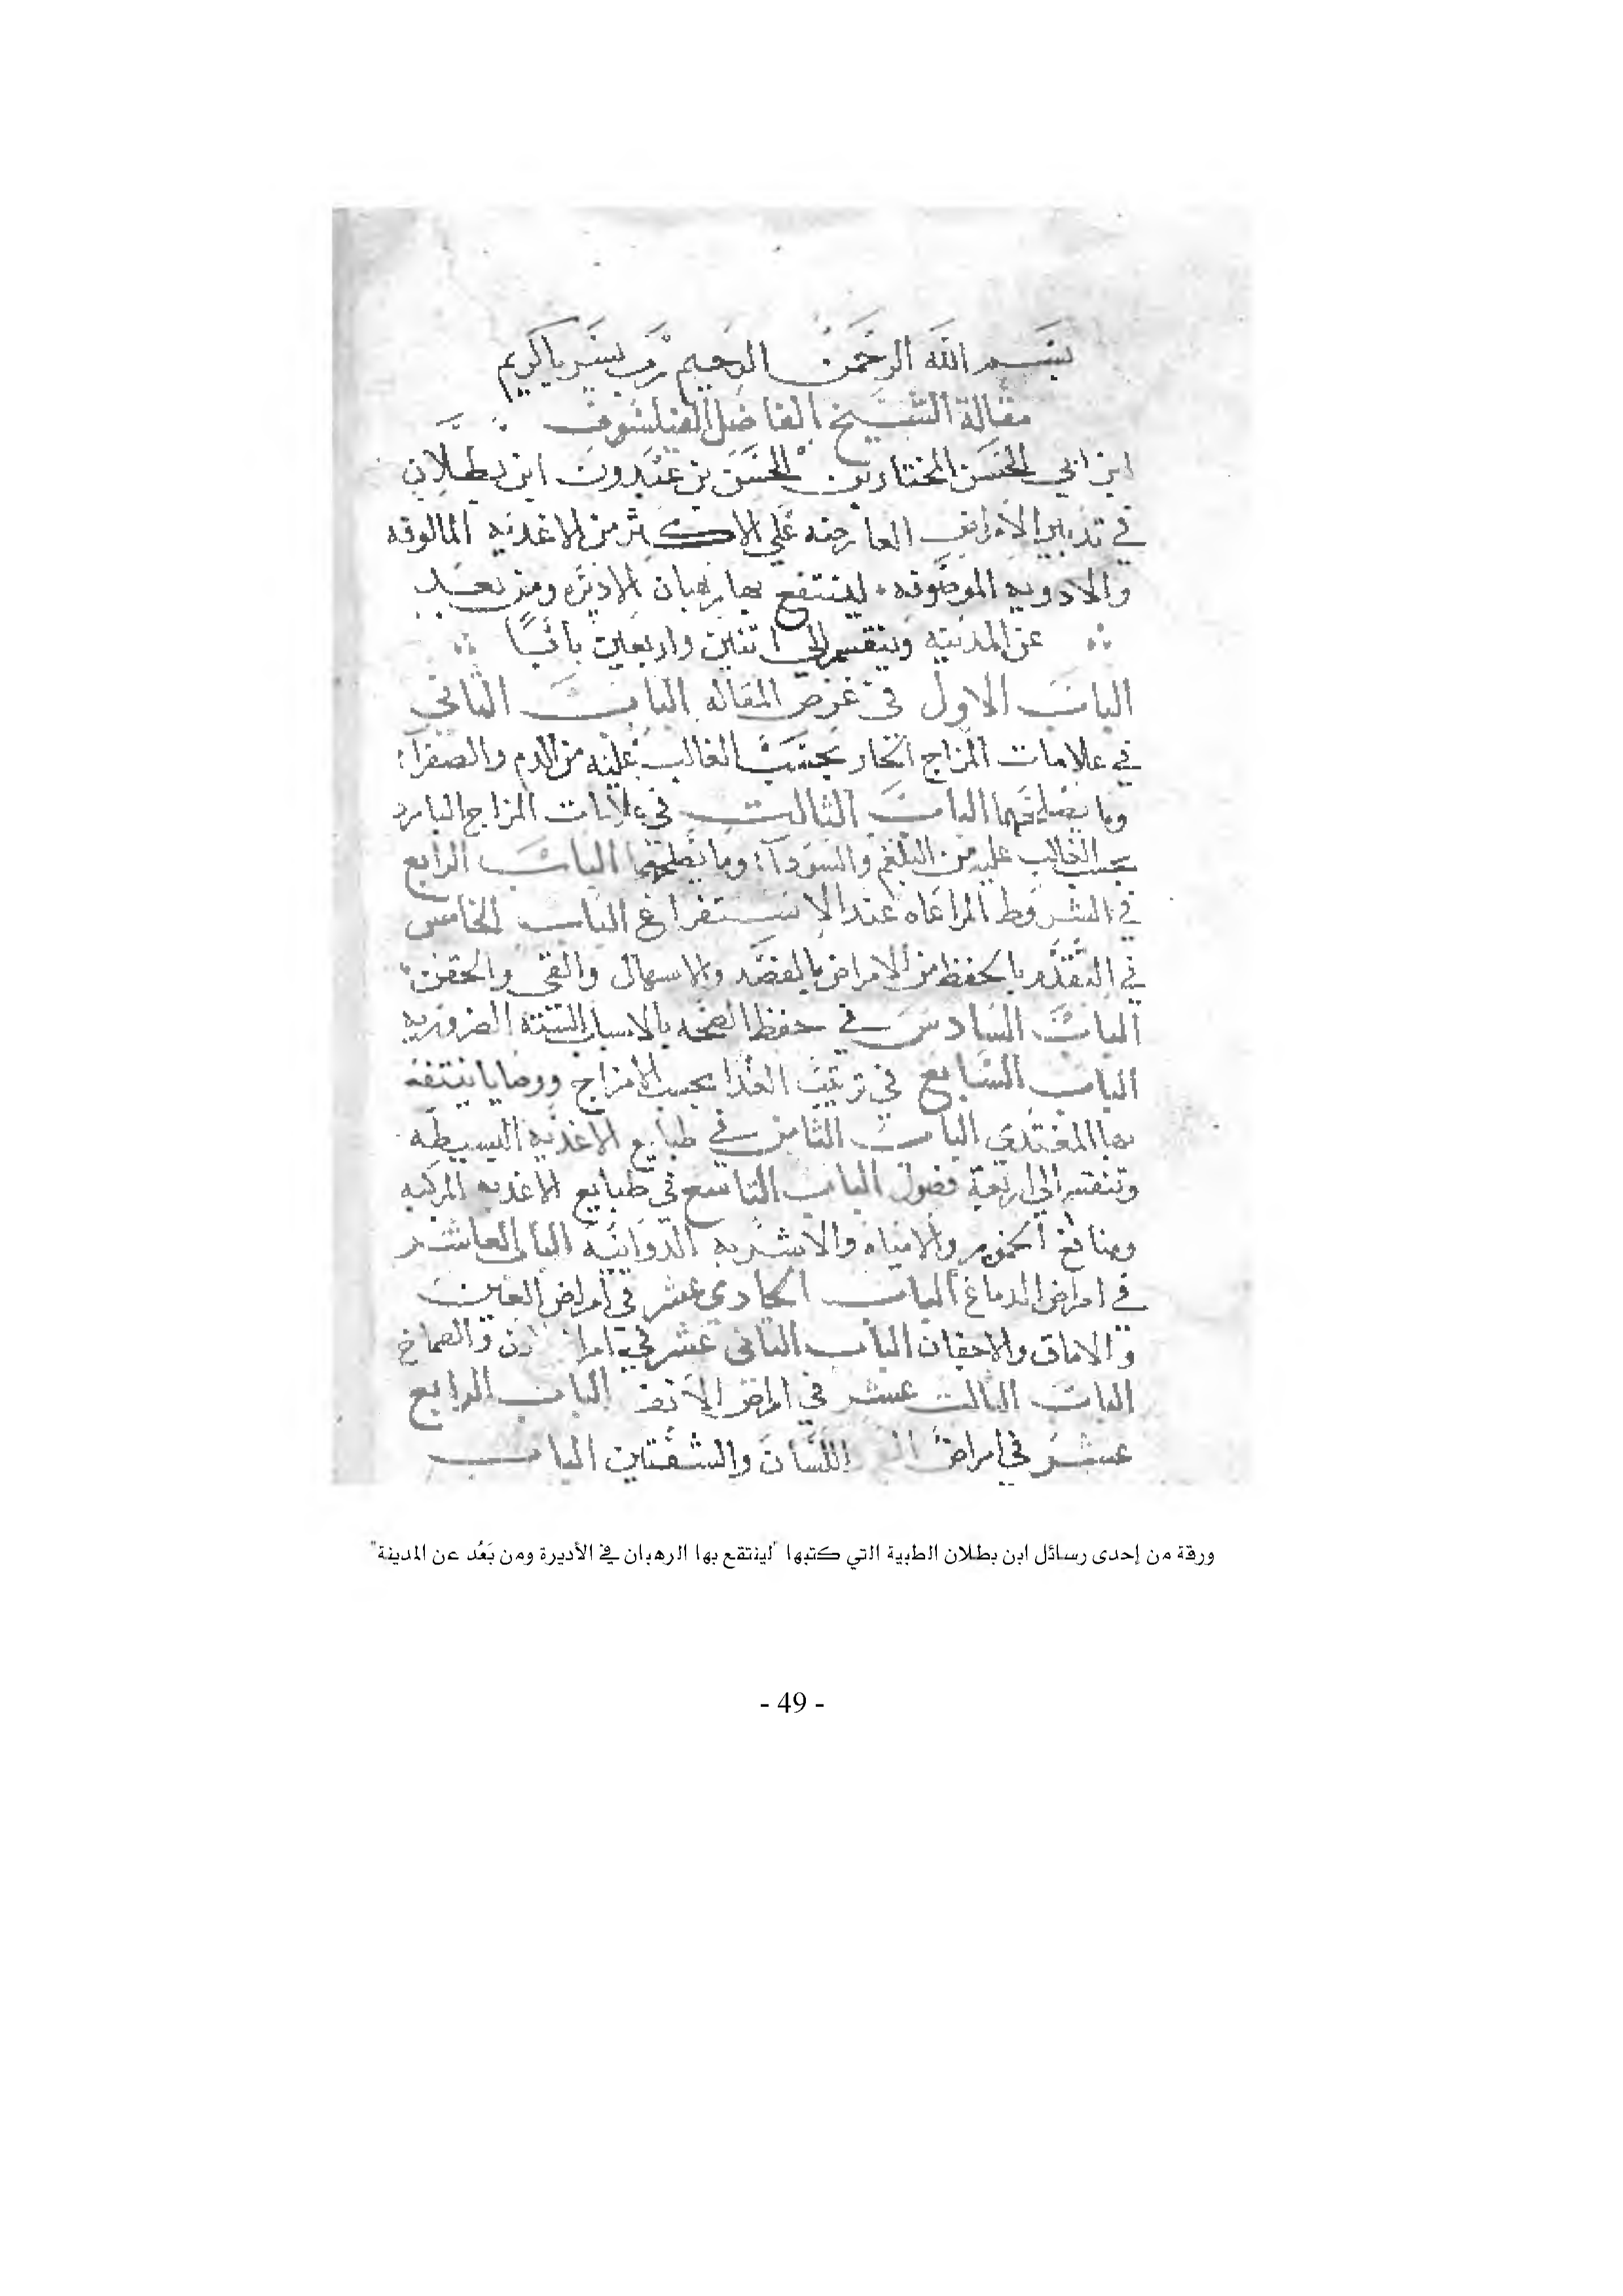 بسم الله الرحمن الرحيم رب يسر يا كريم
مقالة الشيخ الفاضل الفيلسوف
ابن ابي الحسن المختار بن الحسن بن عبدون ابن بطلان
في تدبير الامراض العارضه علي الاكثر من الاغذيه المالوفه
والادويه الموصوفه لينتفع بها رهبان الاديره ومن بعد
عن المدينه وينقسم الى اتنين واربعين بابًا
الباب الاول في غرض المقاله الباب الثاني
في علامات المزاج الحار بحسب الغالب عليه من الدم والصفرا
وما يصلحهما الباب الثالث في علامات المزاج البارد
بحسب الغالب عليه من البلغم والسودا وما يصلحهما الباب الرابع
في الشروط المراعاه عند الاستفراغ الباب الخامس
في التقدم بالحفظ من الامراض بالفصد والاسهال والقي والحقن
الباب السادس في حفظ الصحه بالاسباب الستة الضروريه
الباب السابع في ترتيب الغذا بحسب الامزاج ووصايا ينتفع
بها المغتدي الباب الثامن في طبايع الاغذيه البسيطه
وتنقسم الي اربعة فصول الباب التاسع في طبايع الاغذيه المركبه
ومنافع الخمور والامياه والاشربه الدوائيه الباب العاشر
في امراض الدماغ الباب الحادي عشر في امراض العين
والاماق والاجفان الباب الثاني عشر في والصماخ
الباب الثالث عشر في امراض الانف الباب الرابع
عشر في امراض اللسان والشفتين الباب
ورقة من إحدى رسائل ابن بطلان الطبية التي كتبها "لينتقع بها الرهبان في الأديرة ومن بَعُد عن المدينة"
- 49 -